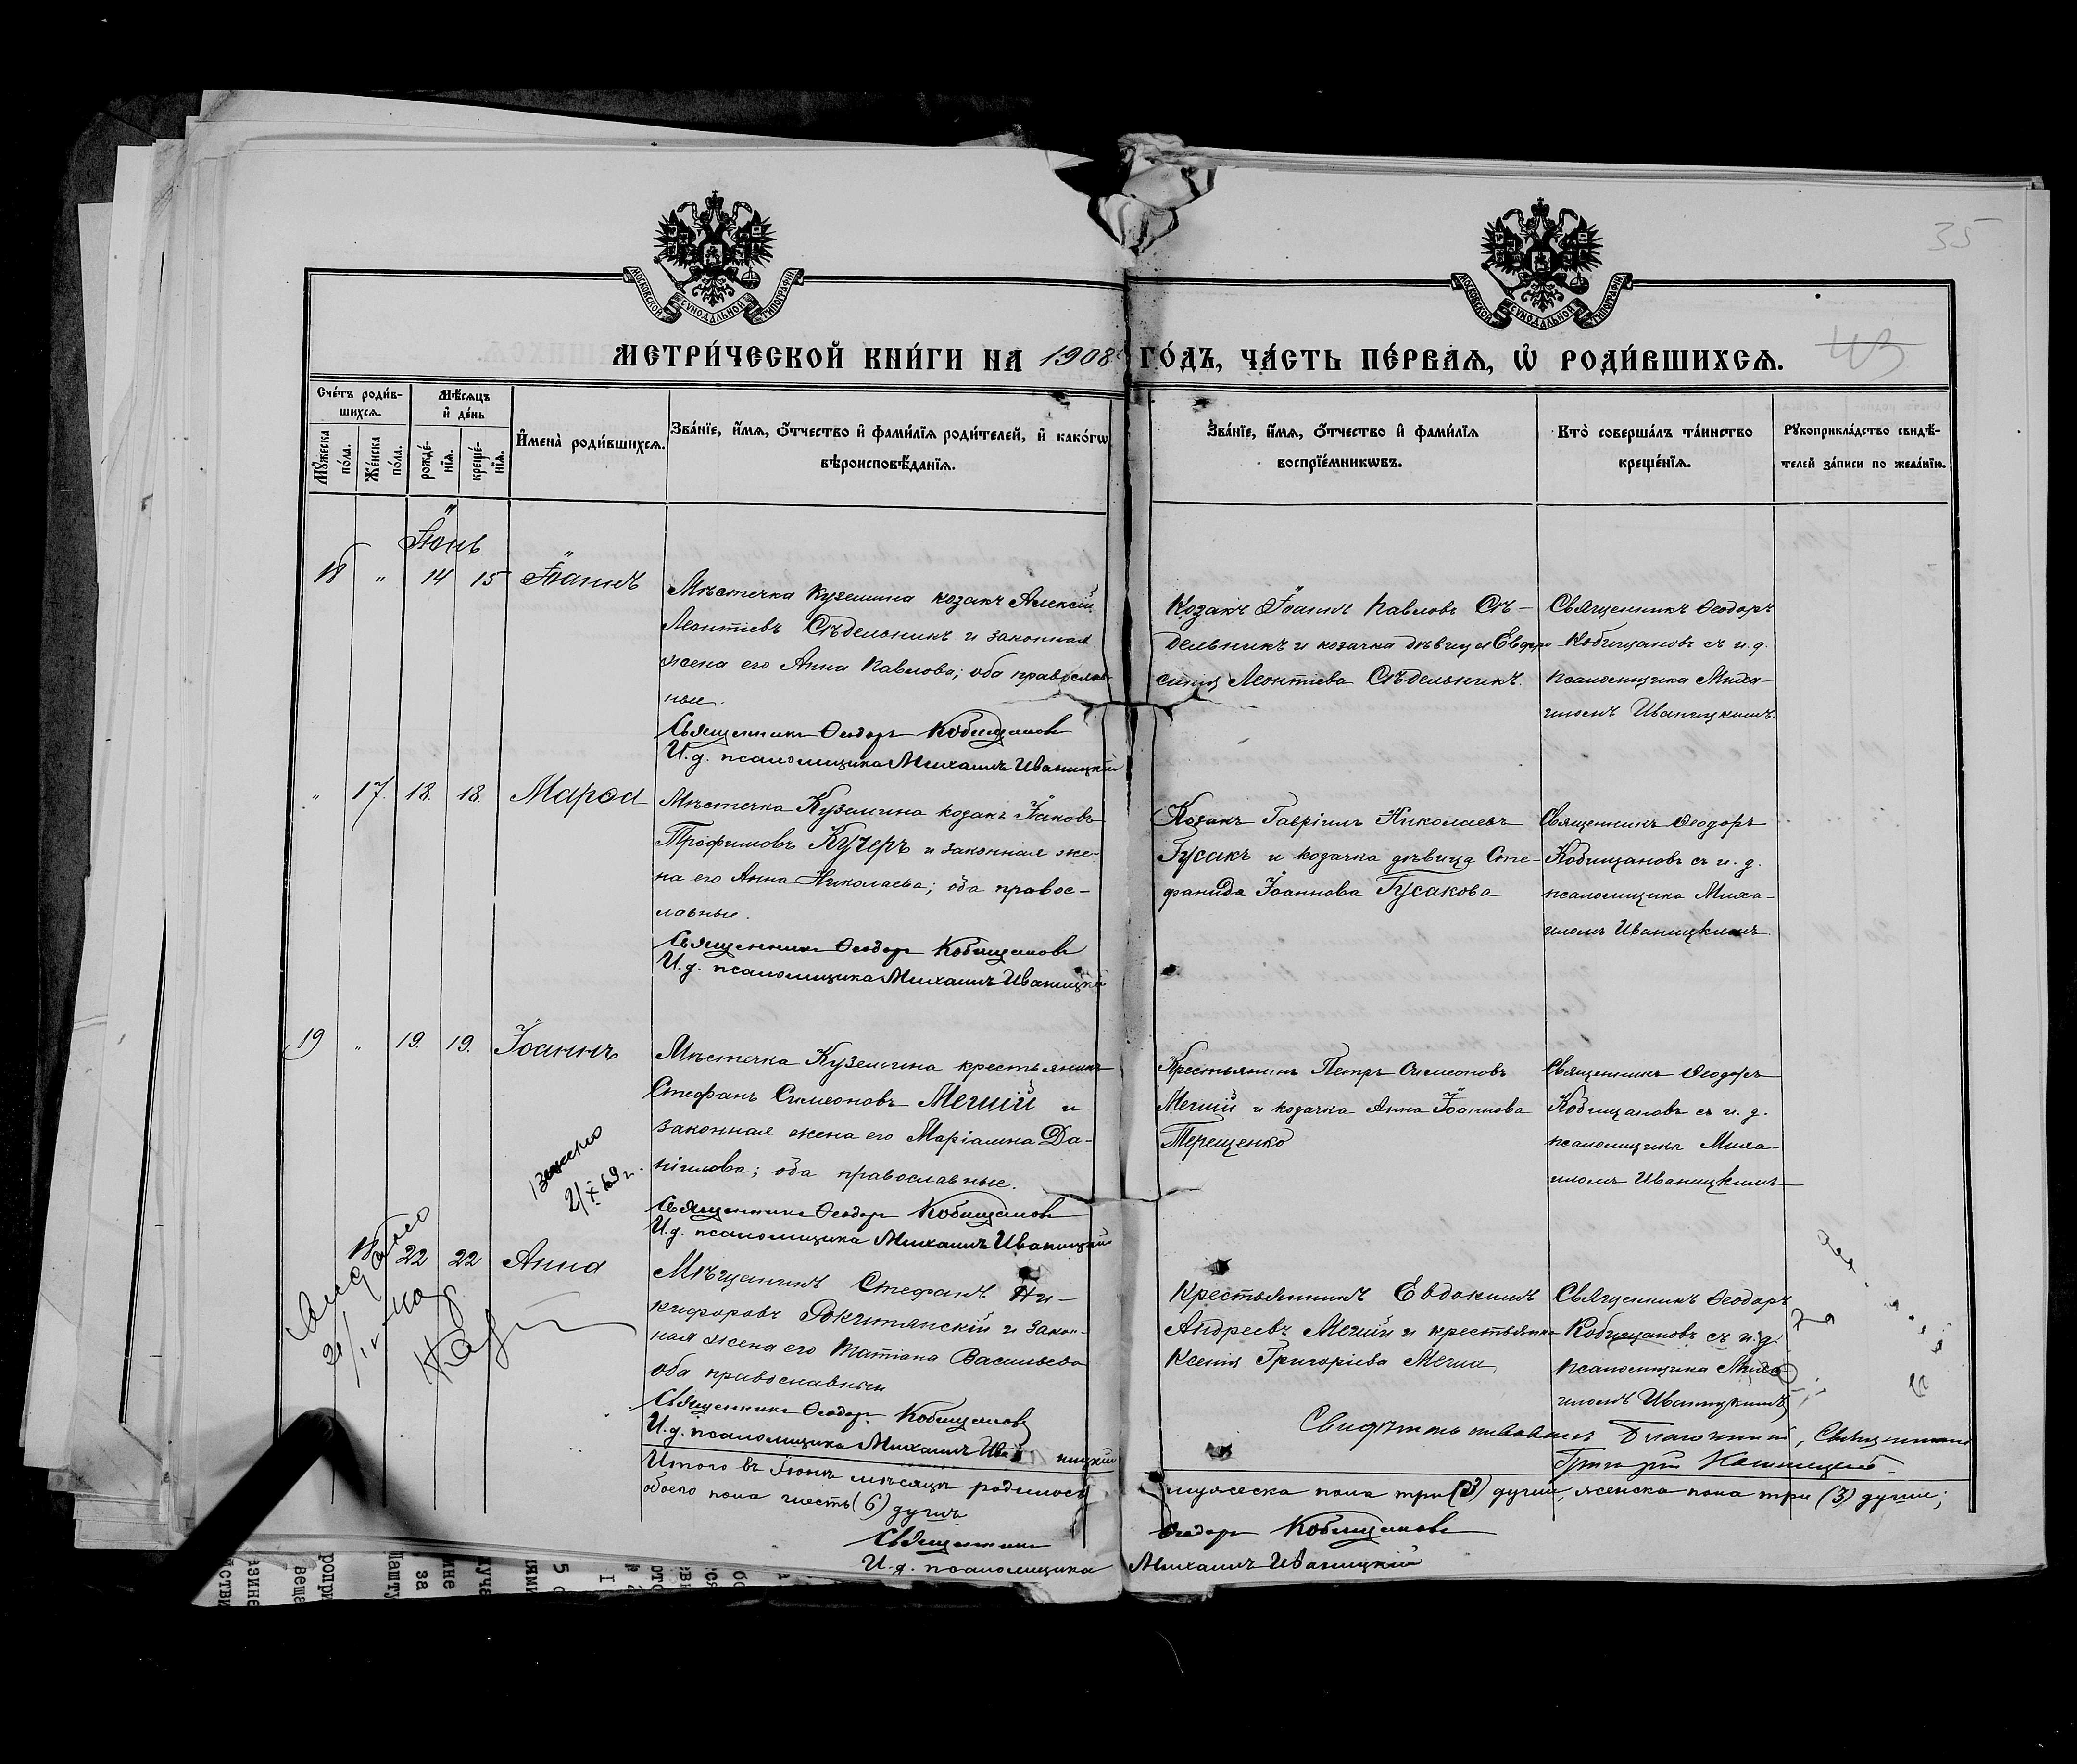 МОСКОВСКОЙ СѴНОДАЛЬНОЙ ТИПОГРАФІИ
МОСКОВСКОЙ СѴНОДАЛЬНОЙ ТИПОГРАФІИ
35
43
МЕТРИ́ЧЕСКОЙ КНИ́ГИ НА 1908 ГО́ДЪ, ЧА́СТЬ ПЕ́РВАѦ, Ѡ҆ РОДИ́ВШИХСѦ.
Сче́тъ роди́в-
шихсѧ.
Мꙋ́жеска
по́ла.
Же́нска
по́ла.
Мѣ́сѧцъ
и҆ де́нь
рожде́-
нїѧ.
креще́-
нїѧ.
И҆мена̀ роди́вшихсѧ.
Зва́нїе, и҆́мѧ, ѻ҆́тчество и҆ фами́лїѧ роди́телей, и҆ како́гѡ
вѣроисповѣ́данїѧ.
Зва́нїе, и҆́мѧ, ѻ҆́тчество и҆ фами́лїѧ
воспрїе́мникѡвъ.
Кто̀ соверша́лъ та́инство
креще́нїѧ.
Рꙋкоприкла́дство свидѣ́-
телей за́писи по жела́нїю.
Іюнь
18 " 14 15 Іоаннъ
Мѣстечка Куземина козакъ Алексій
Леонтіевъ Сѣдельникъ и законная
жена его Анна Павлова; оба православ-
ные.
Священникъ Ѳеодоръ Кобищановъ
И. д. псаломщика Михаилъ Иваницкій
Козакъ Іоаннъ Павловъ Сѣ-
дельникъ и козачка дѣвица Евфро-
синія Леонтіева Сѣдельникъ.
Священникъ Ѳеодоръ
Кобищановъ съ и. д.
псаломщика Миха-
иломъ Иваницкимъ.
" 17. 18. 18. Марѳа
Мѣстечка Куземина козакъ Іаковъ
Трофимовъ Кучеръ и законная же-
на его Анна Николаева; оба правос-
лавные.
Священникъ Ѳеодоръ Кобищановъ
И. д. псаломщика Михаилъ Иваницкій
Козакъ Гавріилъ Николаевъ
Гусакъ и козачка дѣвица Сте-
фанида Іоаннова Гусакова
Священникъ Ѳеодоръ
Кобищановъ съ и. д.
псаломщика Миха-
иломъ Иваницкимъ.
19 " 19. 19. Іоаннъ
Мѣстечка Куземина крестьянинъ
Стефанъ Симеоновъ Мегий и
законная жена его Маріамна Да-
ніилова; оба православные.
Священникъ Ѳеодоръ Кобищановъ
И. д. псаломщика Михаилъ Иваницкій
Крестьянинъ Петръ Симеоновъ
Мегий и козачка Анна Іоаннова
Терещенко
Священникъ Ѳеодоръ
Кобищановъ съ и. д.
псаломщика Миха-
иломъ Иваницкимъ
18 22 22 Анна
Мѣщанинъ Стефанъ Ни-
кифоровъ Рокитянскій и закон-
ная жена его Татіана Васильева
оба православные
Священникъ Ѳеодоръ Кобищановъ
И. д. псаломщика Михаилъ Иваницкій
Крестьянинъ Евдокимъ
Андреевъ Мегий и крестьянка
Ксенія Григоріева Мегиа
Священникъ Ѳеодоръ
Кобищановъ съ и. д.
псаломщика Миха
иломъ Иваницкимъ
Свидѣтельствовалъ Благочинный, Священникъ
Григорій
Итого въ Іюнѣ мѣсяцѣ родилось мужеска пола три (3) души, женска пола три (3) души;
обоего пола шесть (6) душъ
Священникъ Ѳеодоръ Кобищановъ
И. д. псаломщика Михаилъ Иваницкій